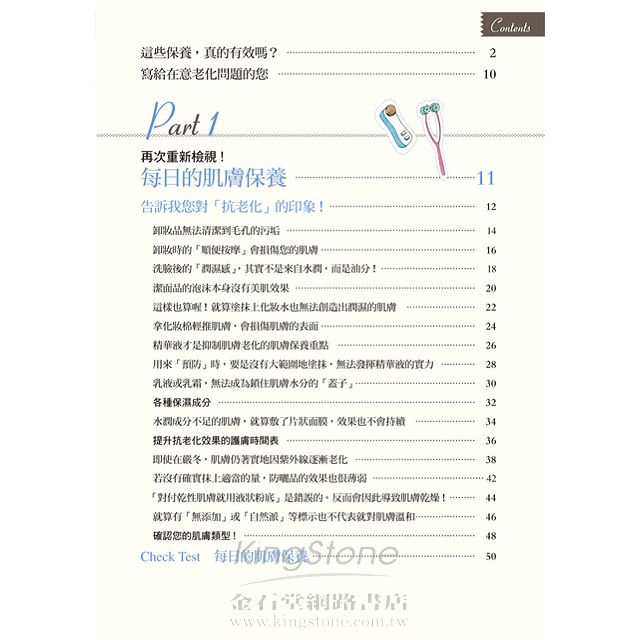 Contents
這些保養，真的有效嗎？ 2
寫給在意老化問題的您 10
Part 1
再次重新檢視！
每日的肌膚保養 11
告訴我您對「抗老化」的印象！ 12
卸妝品無法清潔到毛孔的污垢 14
卸妝時的「順便按摩」會損傷您的肌膚 16
洗臉後的「潤濕感」，其實不是來自水潤，而是油分！ 18
潔面品的泡沫本身沒有美肌效果 20
這樣也算喔！就算塗抹上化妝水也無法創造出潤濕的肌膚 22
拿化妝棉輕推肌膚，會損傷肌膚的表面 24
精華液才是抑制肌膚老化的肌膚保養重點 26
用來「預防」時，要是沒有大範圍地塗抹，無法發揮精華液的實力 28
乳液或乳霜，無法成為鎖住肌膚水分的「蓋子」 30
各種保濕成分 32
水潤成分不足的肌膚，就算敷了片狀面膜，效果也不會持續 34
提升抗老化效果的護膚時間表 36
即使在嚴冬，肌膚仍著實地因紫外線逐漸老化 38
若沒有確實抹上適當的量，防曬品的效果也很薄弱 42
「對付乾性肌膚就用液狀粉底」是錯誤的。反而會因此導致肌膚乾燥！ 44
就算有「無添加」或「自然派」等標示也不代表就對肌膚溫和 46
確認您的肌膚類型！ 48
Check Test 每日的肌膚保養 50
KingStone
金石堂網路書店
www.kingstone.com.tw